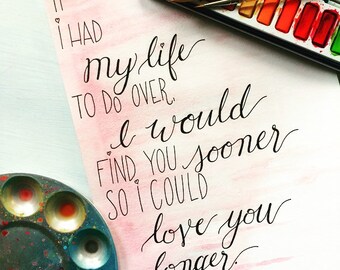 I HAD
my life
TO DO OVER,
I would
FIND YOU sooner
SO I COULD
love you
longer.